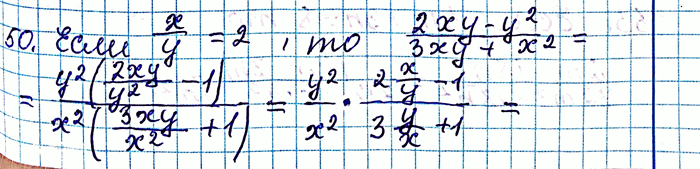 50. Если x/y = 2, то (2xy - y²)/(3xy + x²) =
= y²(2xy/y² - 1)/x²(3xy/x² + 1) = y²/x² · (2 x/y - 1)/(3 y/x + 1) =